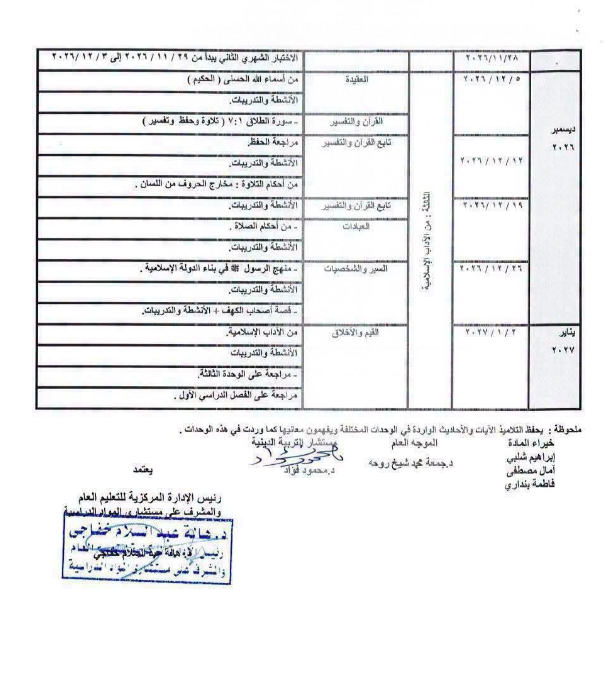 ٢٠٢٦/١١/٢٨ الاختبار الشهري الثاني يبدأ من ٢٩ / ١١ / ٢٠٢٦ إلى ٣ / ١٢ / ٢٠٢٦
ديسمبر ٢٠٢٦
الثالثة : من الآداب الإسلامية
٥ / ١٢ / ٢٠٢٦ العقيدة من أسماء الله الحسنى ( الحكيم )
الأنشطة والتدريبات.
القرآن والتفسير - سورة الطلاق ٧:١ ( تلاوة وحفظ وتفسير )
١٢ / ١٢ / ٢٠٢٦ تابع القرآن والتفسير مراجعة الحفظ.
الأنشطة والتدريبات.
من أحكام التلاوة : مخارج الحروف من اللسان .
١٩ / ١٢ / ٢٠٢٦ تابع القرآن والتفسير الأنشطة والتدريبات.
العبادات - من أحكام الصلاة .
الأنشطة والتدريبات.
٢٦ / ١٢ / ٢٠٢٦ السير والشخصيات - منهج الرسول ﷺ في بناء الدولة الإسلامية .
الأنشطة والتدريبات.
- قصة أصحاب الكهف + الأنشطة والتدريبات.
يناير ٢٠٢٧
٢ / ١ / ٢٠٢٧ القيم والأخلاق من الآداب الإسلامية.
الأنشطة والتدريبات
- مراجعة على الوحدة الثالثة.
مراجعة على الفصل الدراسي الأول.
ملحوظة : يحفظ التلاميذ الآيات والأحاديث الواردة في الوحدات المختلفة ويفهمون معانيها كما وردت في هذه الوحدات .
خبراء المادة الموجه العام مستشار التربية الدينية
إبراهيم شلبي
آمال مصطفى د.جمعة محمد شيخ روحه د.محمود فؤاد
فاطمة بنداري
يعتمد
رئيس الإدارة المركزية للتعليم العام
والمشرف على مستشاري المواد الدراسية
د. هالة عبد السلام خفاجي
د/ هالة عبد السلام خفاجي
رئيس الإدارة المركزية للتعليم العام
والمشرف على مستشاري المواد الدراسية